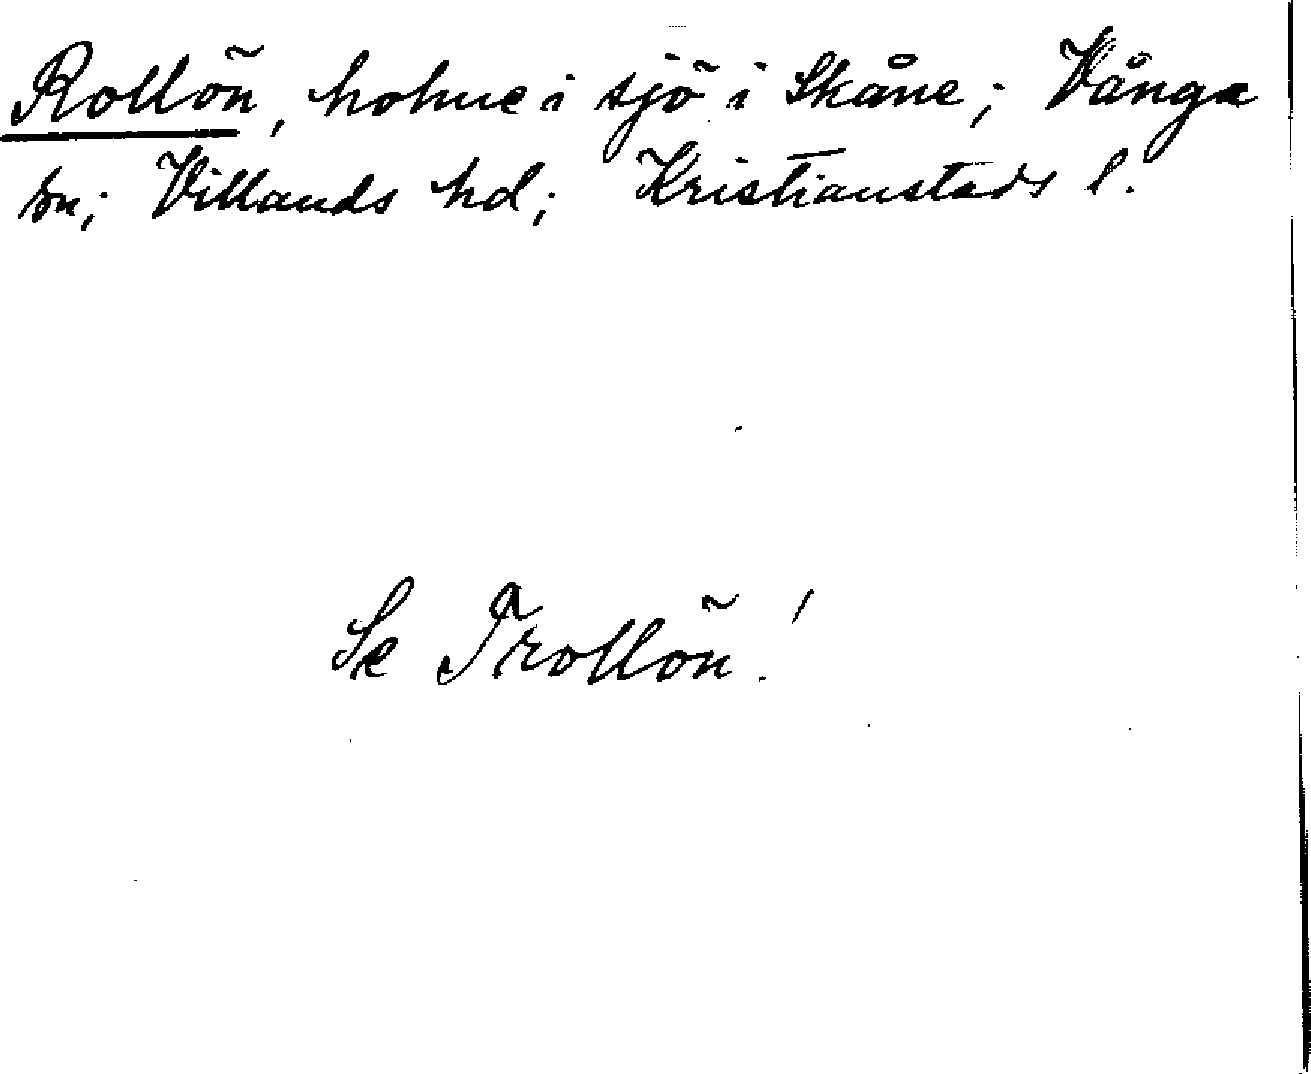 Rollön, holme i sjö i Skåne; Vånga
sn; Villands hd; Kristianstads l.
Se Trollön!